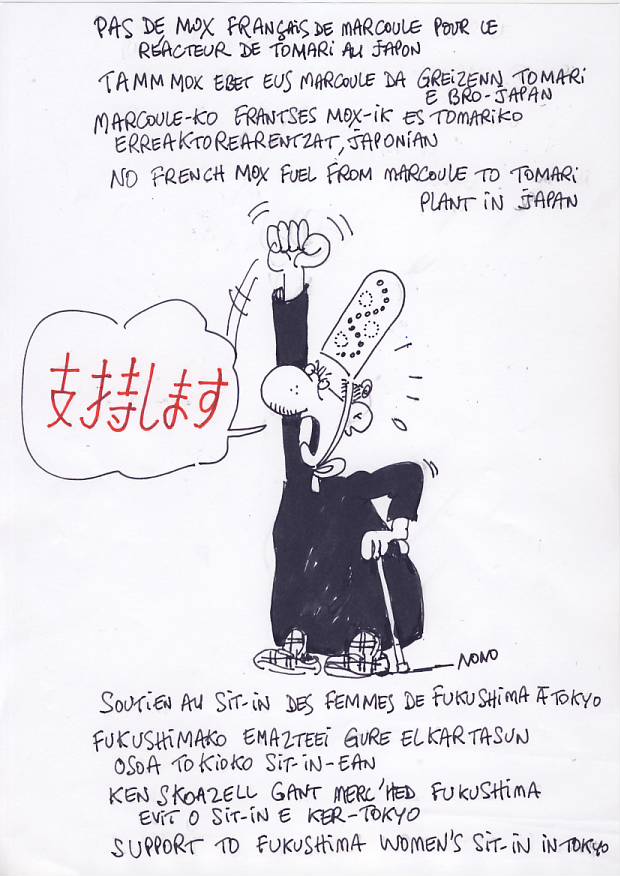 PAS DE MOX FRANÇAIS DE MARCOULE POUR LE
RÉACTEUR DE TOMARI AU JAPON
TAMM MOX EBET EUS MARCOULE DA GREIZENN TOMARI
E BRO-JAPAN
MARCOULE-KO FRANTSES MOX-IK ES TOMARIKO
ERREAKTOREARENTZAT, JAPONIAN
NO FRENCH MOX FUEL FROM MARCOULE TO TOMARI
PLANT IN JAPAN
支持します
NONO
SOUTIEN AU SIT-IN DES FEMMES DE FUKUSHIMA À TOKYO
FUKUSHIMAKO EMAZTEEI GURE ELKARTASUN
OSOA TOKIOKO SIT-IN-EAN
KEN SKOAZELL GANT MERC'HED FUKUSHIMA
EVIT O SIT-IN E KER-TOKYO
SUPPORT TO FUKUSHIMA WOMEN'S SIT-IN IN TOKYO